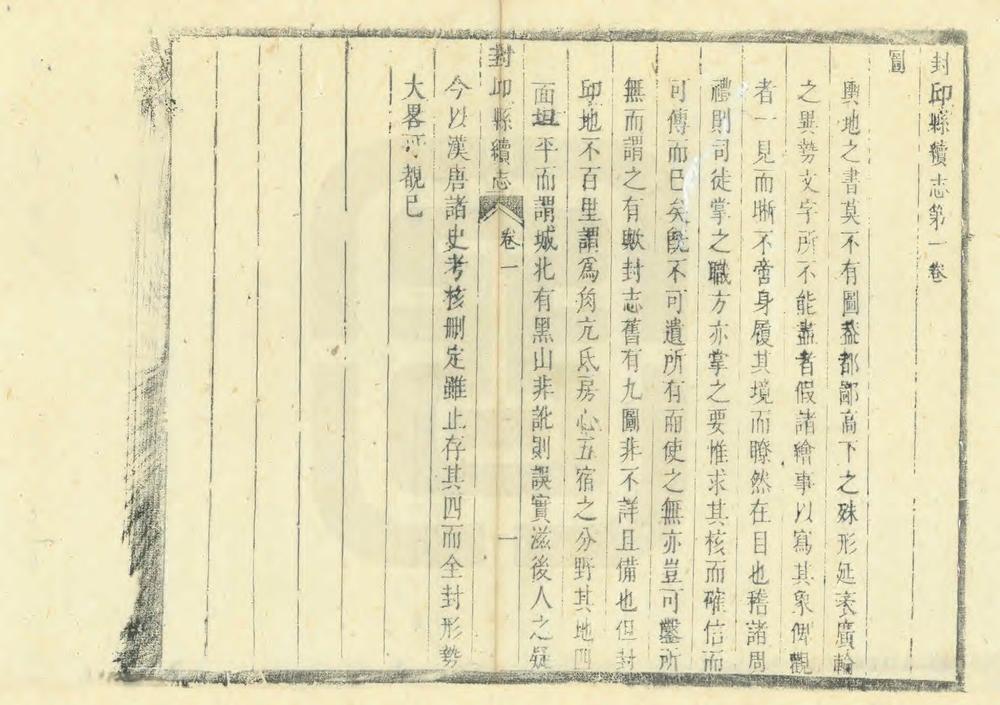 封邱縣續志第一卷
圖
輿地之書莫不有圖葢都鄙高下之殊形延袤廣輪
之異勢文字所不能盡者假諸繪事以寫其象俾觀
者一見而晰不啻身履其境而瞭然在目也稽諸周
禮則司徒掌之職方亦掌之要惟求其核而確信而
可傳而已矣旣不可遺所有而使之無亦豈可鑿所
無而謂之有歟封志舊有九圖非不詳且備也但封
邱地不百里謂爲角亢氐房心五宿之分野其地四
面坦平而謂城北有黑山非訛則誤實滋後人之疑
封邱縣續志 卷一 一
今以漢唐諸史考核刪定雖止存其四而全封形勢
大畧可覩已